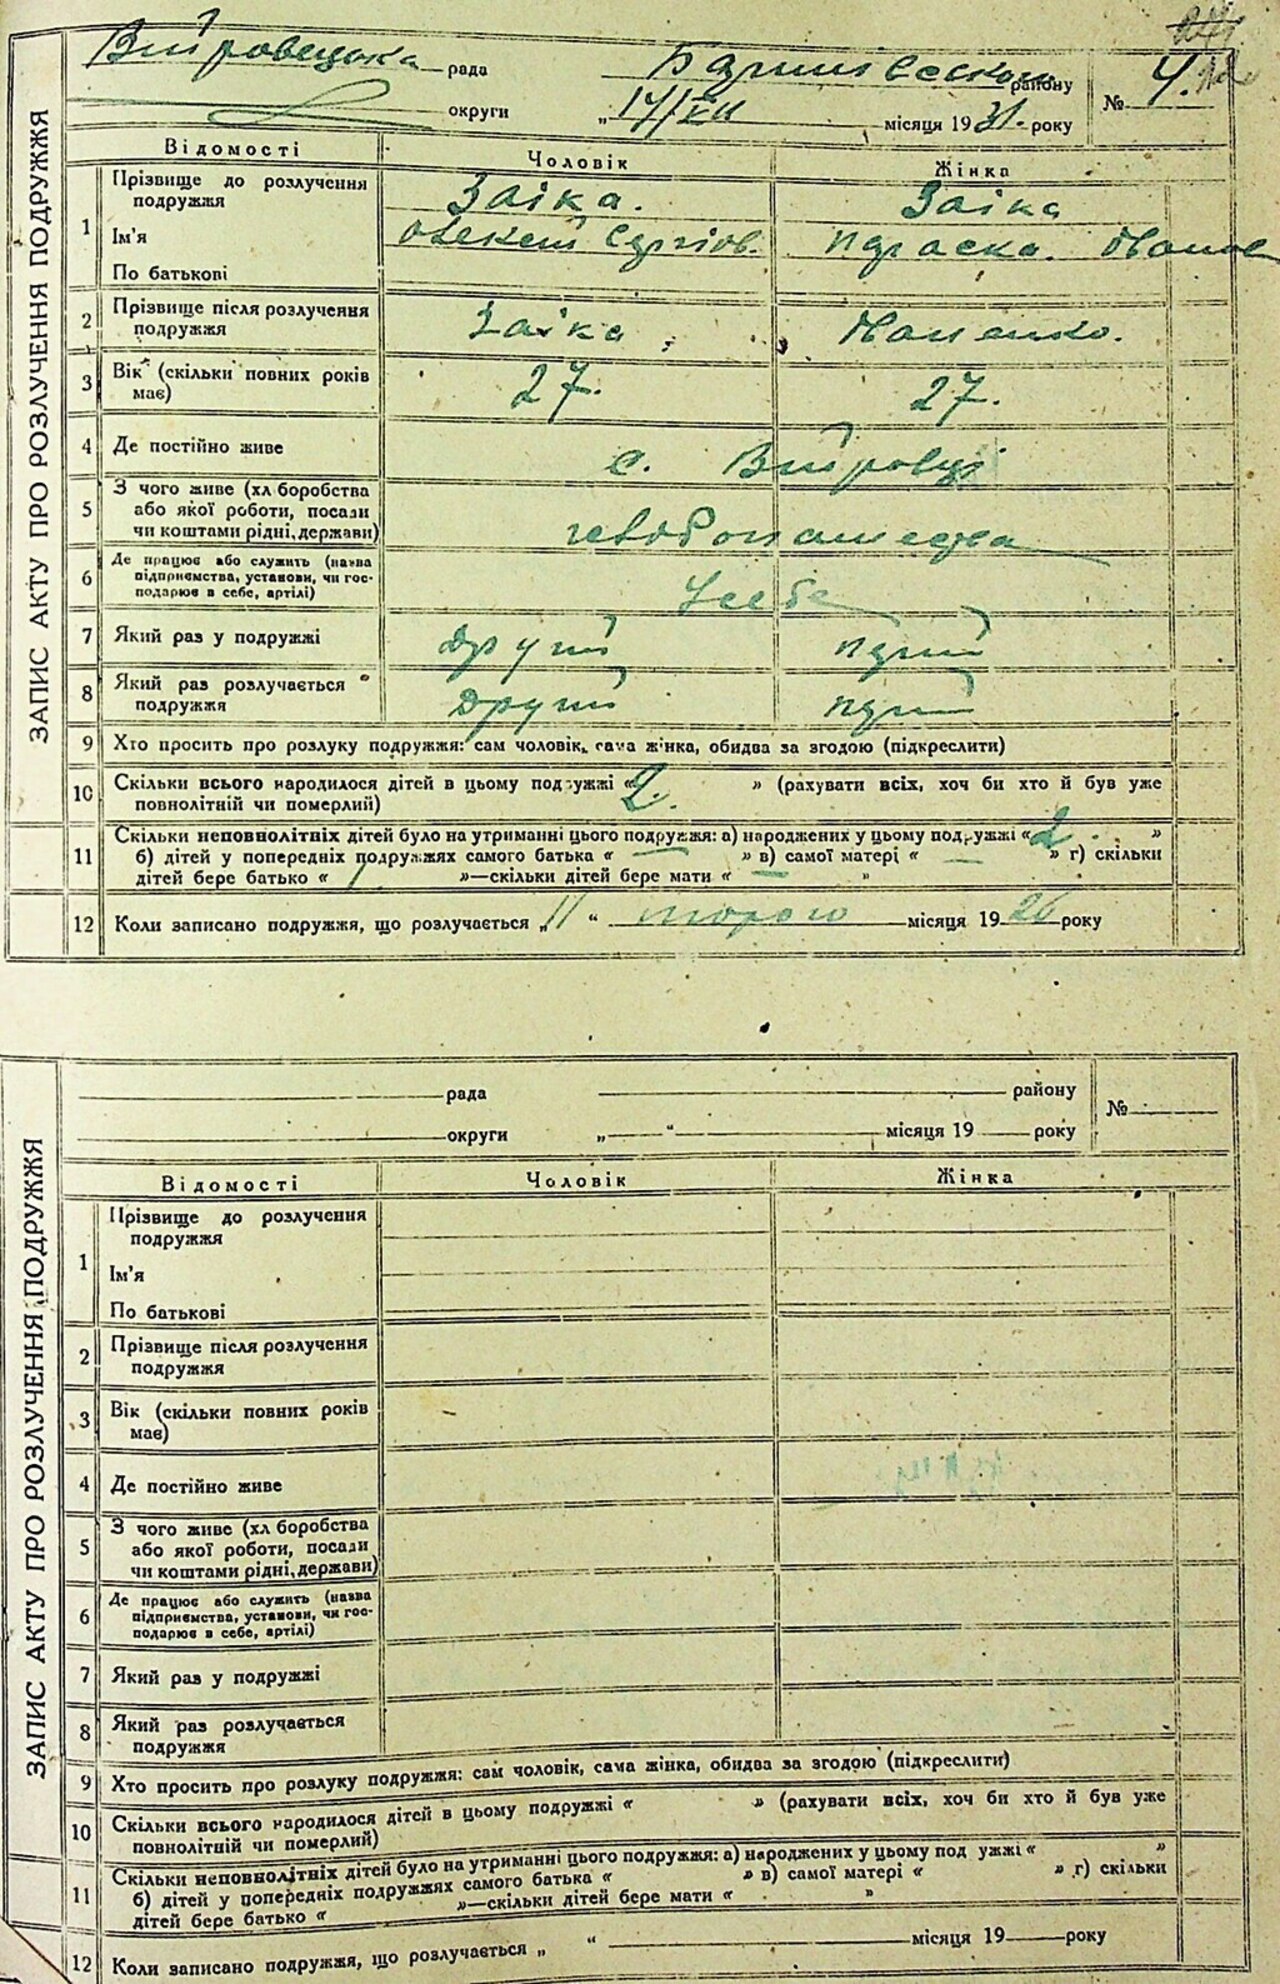 ЗАПИС АКТУ ПРО РОЗЛУЧЕННЯ ПОДРУЖЖЯ
рада району
№ 4.
округи „14/XII місяця 1931. року
Відомості Чоловік Жінка
1 Прізвище до розлучення подружжя Заіка. Заіка
Ім'я Сергіов. Параска.
По батькові
2 Прізвище після розлучення подружжя Заіка
3 Вік (скільки повних років має) 27. 27.
4 Де постійно живе с.
5 З чого живе (хлiборобства
або якої роботи, посади
чи коштами рідні, держави)
6 Де працює або служить (назва
підприємства, установи, чи гос-
подарює в себе, артілі)
7 Який раз у подружжі другий
8 Який раз розлучається подружжя другий
9 Хто просить про розлуку подружжя: сам чоловік, сама жінка, обидва за згодою (підкреслити)
10 Скільки всього народилося дітей в цьому подружжі «2.» (рахувати всіх, хоч би хто й був уже
повнолітній чи померлий)
11 Скільки неповнолітніх дітей було на утриманні цього подружжя: а) народжених у цьому подружжі «2»
б) дітей у попередніх подружжях самого батька « — » в) самої матері « — » г) скільки
дітей бере батько « »—скільки дітей бере мати « — »
12 Коли записано подружжя, що розлучається „11“ місяця 1926 року
ЗАПИС АКТУ ПРО РОЗЛУЧЕННЯ ПОДРУЖЖЯ
рада району
№
округи „ “ місяця 19 року
Відомості Чоловік Жінка
1 Прізвище до розлучення
подружжя
Ім'я
По батькові
2 Прізвище після розлучення
подружжя
3 Вік (скільки повних років
має)
4 Де постійно живе
5 З чого живе (хл боробства
або якої роботи, посади
чи коштами рідні, держави)
6 Де працює або служить (назва
підприємства, установи, чи гос-
подарює в себе, артілі)
7 Який раз у подружжі
8 Який раз розлучається
подружжя
9 Хто просить про розлуку подружжя: сам чоловік, сама жінка, обидва за згодою (підкреслити)
10 Скільки всього народилося дітей в цьому подружжі « » (рахувати всіх, хоч би хто й був уже
повнолітній чи померлий)
11 Скільки неповнолітніх дітей було на утриманні цього подружжя: а) народжених у цьому под ужжі « »
б) дітей у попередніх подружжях самого батька « » в) самої матері « » г) скільки
дітей бере батько « »—скільки дітей бере мати « »
12 Коли записано подружжя, що розлучається „ “ місяця 19 року